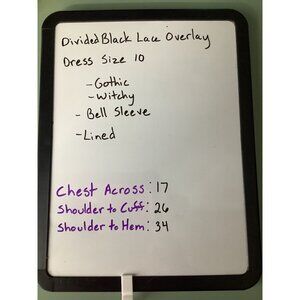 Divided Black Lace Overlay
Dress Size 10
- Gothic
- Witchy
- Bell Sleeve
- Lined
Chest Across: 17
Shoulder to Cuff: 26
Shoulder to Hem: 34